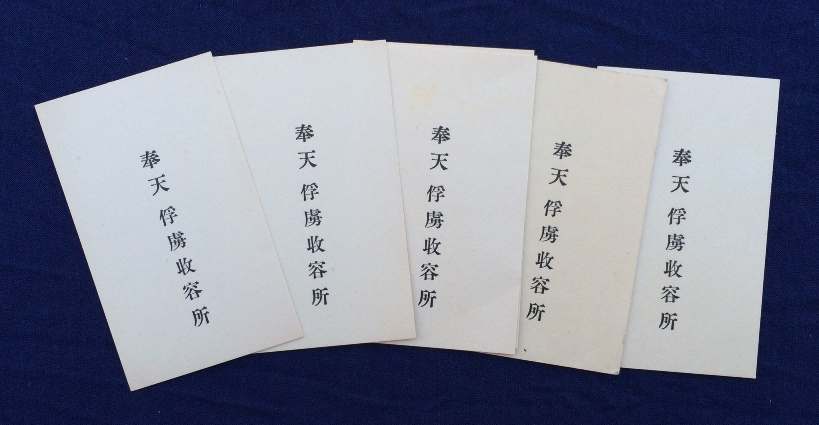 奉天俘虜收容所
奉天俘虜收容所
奉天俘虜收容所
奉天俘虜收容所
奉天俘虜收容所